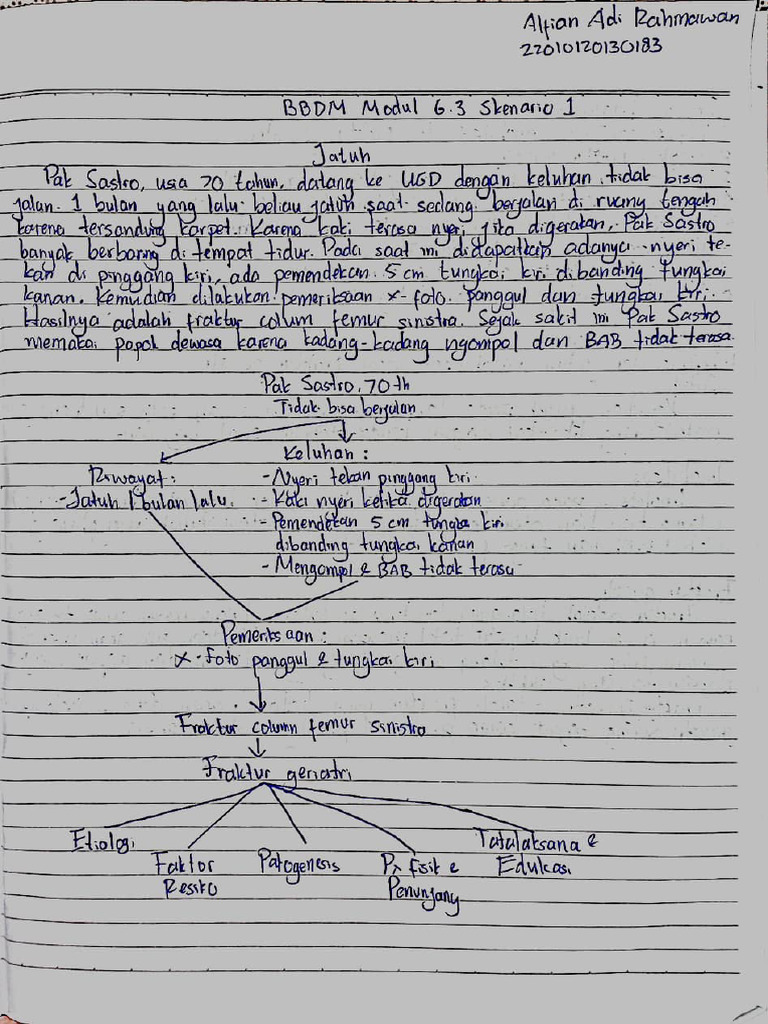 Alfian Adi Rahmawan
22010120130183
BBDM Modul 6.3 Skenario 1
Jatuh
Pak Sastro, usia 70 tahun, datang ke UGD dengan keluhan tidak bisa
jalan. 1 bulan yang lalu beliau jatuh saat sedang berjalan di ruang tengah
karena tersandung karpet. Karena kaki terasa nyeri jika digerakan, Pak Sastro
banyak berbaring di tempat tidur. Pada saat ini didapatkan adanya nyeri te-
kan di pinggang kiri, ada pemendekan 5 cm tungkai kiri dibanding tungkai
kanan. Kemudian dilakukan pemeriksaan x-foto panggul dan tungkai kiri.
Hasilnya adalah fraktur colum femur sinistra. Sejak sakit ini Pak Sastro
memakai popok dewasa karena kadang-kadang ngompol dan BAB tidak terasa.
Pak Sastro, 70 th
Tidak bisa berjalan
Keluhan :
Riwayat :
- Jatuh 1 bulan lalu
- Nyeri tekan pinggang kiri
- Kaki nyeri ketika digerakan
- Pemendekan 5 cm tungkai kiri
dibanding tungkai kanan
- Mengompol & BAB tidak terasa
Pemeriksaan :
x-foto panggul & tungkai kiri
Fraktur column femur sinistra
Fraktur geriatri
Etiologi
Faktor
Resiko
Patogenesis
Px fisik &
Penunjang
Tatalaksana &
Edukasi